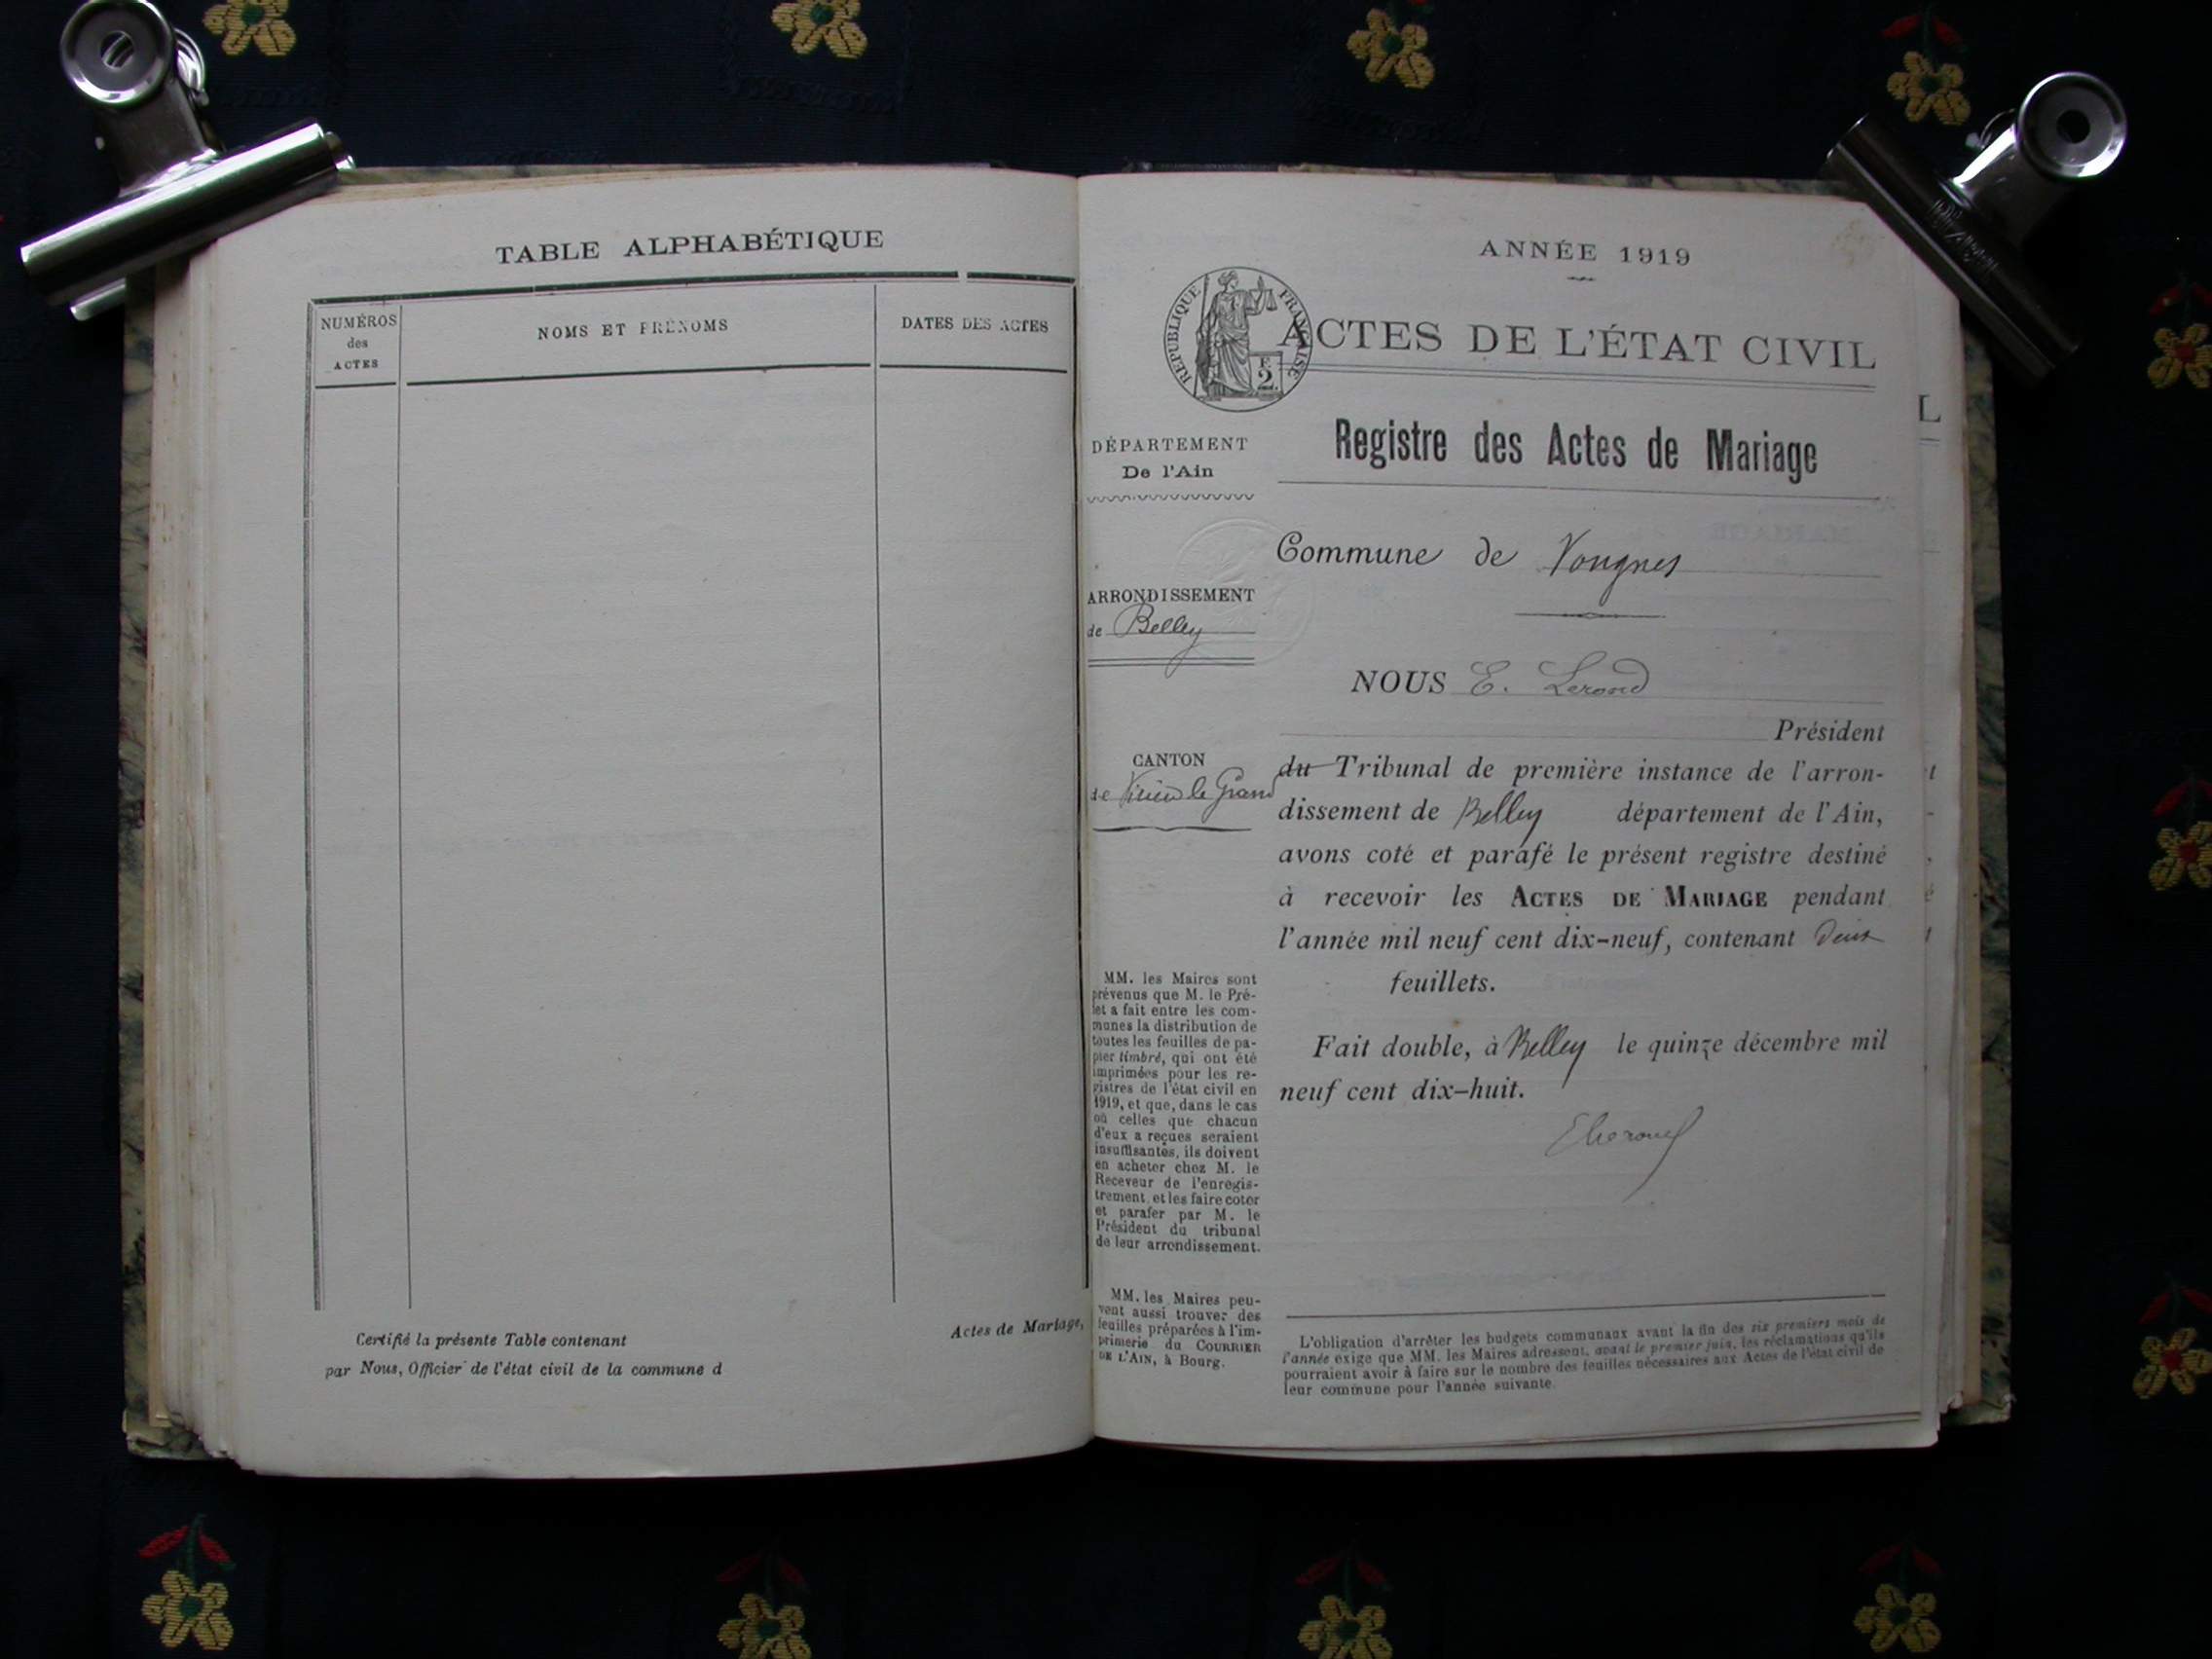 TABLE ALPHABÉTIQUE
NUMÉROS
des
ACTES
NOMS ET PRÉNOMS
DATES DES ACTES
Certifié la présente Table contenant
par Nous, Officier de l'état civil de la commune d
Actes de Mariage,
ANNÉE 1919
RÉPUBLIQUE FRANÇAISE
2
ACTES DE L'ÉTAT CIVIL
Registre des Actes de Mariage
DÉPARTEMENT
De l'Ain
ARRONDISSEMENT
de Belley
CANTON
de Virieu le Grand
MM. les Maires sont
prévenus que M. le Pré-
fet a fait entre les com-
munes la distribution de
toutes les feuilles de pa-
pier timbré, qui ont été
imprimées pour les re-
gistres de l'état civil en
1919, et que, dans le cas
où celles que chacun
d'eux a reçues seraient
insuffisantes, ils doivent
en acheter chez M. le
Receveur de l'enregis-
trement, et les faire coter
et parafer par M. le
Président du tribunal
de leur arrondissement.
MM. les Maires peu-
vent aussi trouver des
feuilles préparées à l'im-
primerie du COURRIER
DE L'AIN, à Bourg.
Commune de Vongnes
NOUS E.
Président
du Tribunal de première instance de l'arron-
dissement de Belley département de l'Ain,
avons coté et parafé le présent registre destiné
à recevoir les ACTES DE MARIAGE pendant
l'année mil neuf cent dix-neuf, contenant Deux
feuillets.
Fait double, à Belley le quinze décembre mil
neuf cent dix-huit.
L'obligation d'arrêter les budgets communaux avant la fin des six premiers mois de
l'année exige que MM. les Maires adressent, avant le premier juin, les réclamations qu'ils
pourraient avoir à faire sur le nombre des feuilles nécessaires aux Actes de l'état civil de
leur commune pour l'année suivante.
L